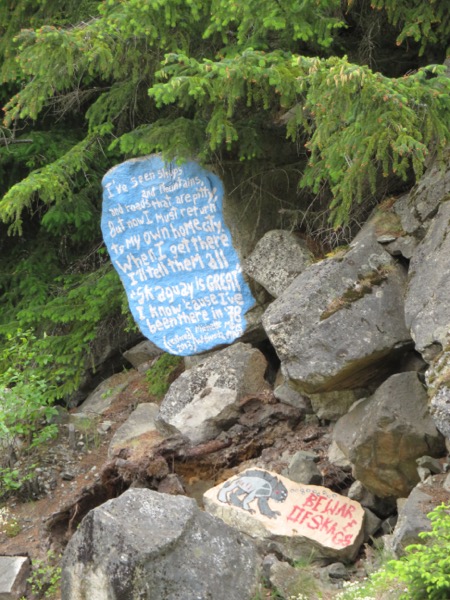 I've seen ships
and mountains,
and roads that are pitty,
But now I must return
to my own home city.
When I get there
I'll tell them all
Skaguay is GREAT
I know 'cause I've
been there in 38
BEWAR